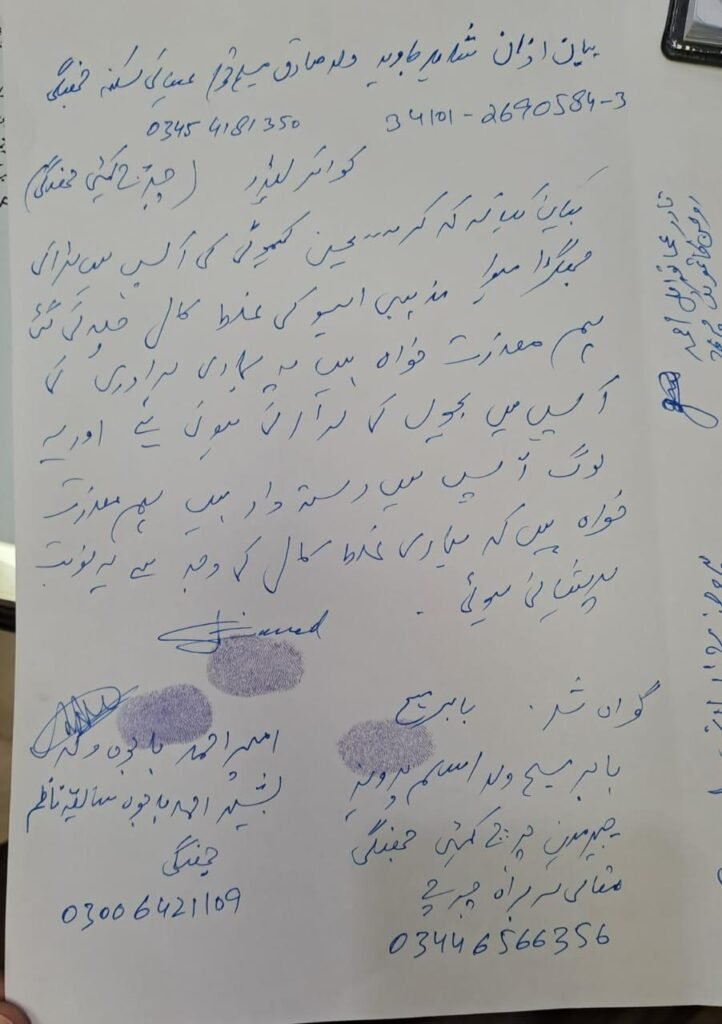 بیان ازان شاہد جاوید ولد صادق مسیح قوم عیسائی سکنہ جھنگی
34101-2690584-3 03454181350
کوائر لیڈر (چرچ کمیٹی جھنگی)
بیان کیا ہے کہ کرسچین کمیونٹی کی آپس میں لڑائی
جھگڑا ہوا مذہبی ایشو کی غلط کال کی گئی
ہم معذرت خواہ ہیں یہ ہماری برادری کی
آپس میں بچوں کی لڑائی ہوئی ہے اور یہ
لوگ آپس میں رشتہ دار ہیں ہم معذرت
خواہ ہیں کہ ہماری غلط کال کی وجہ سے یہ نوبت
پریشانی ہوئی.
گواہ شد. بابر مسیح
بابر مسیح ولد اسلم پرویز
چیرمین چرچ کمیٹی جھنگی
مقامی سربراہ چرچ
03446566356
احمد باجوہ ولد
بشیر احمد باجوہ سابقہ ناظم
جھنگی
03006421109